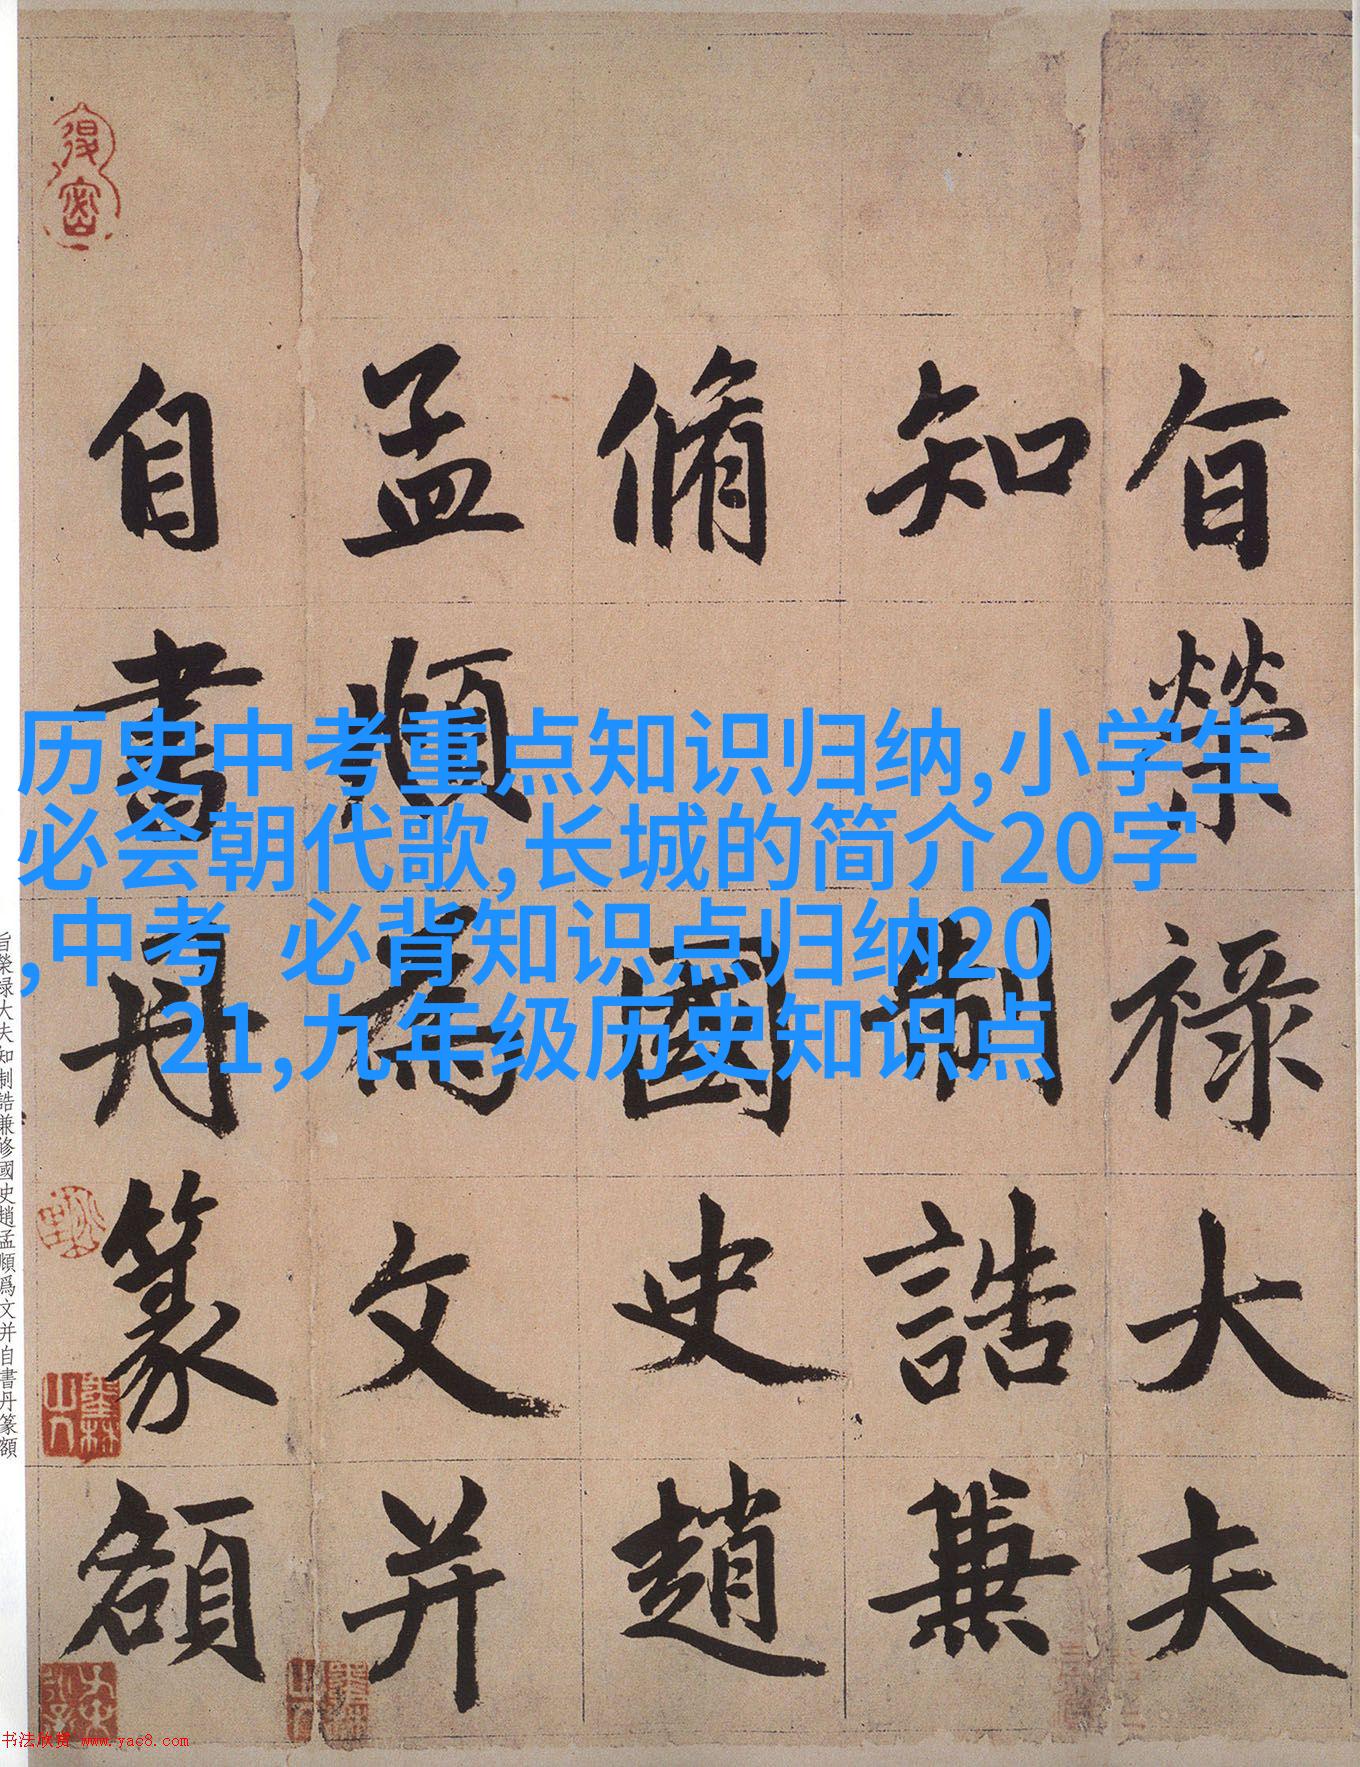 旨榮祿大夫
知制誥兼
脩國史趙
孟頫為文并
自書丹篆額
历史中考重点知识归纳,小学生
必会朝代歌,长城的简介20字
,中考 必背知识点归纳20
21,九年级历史知识点
旨榮禄大夫知制誥兼修國史趙孟頫爲文并自書丹篆額
书法欣赏 www.yac8.com